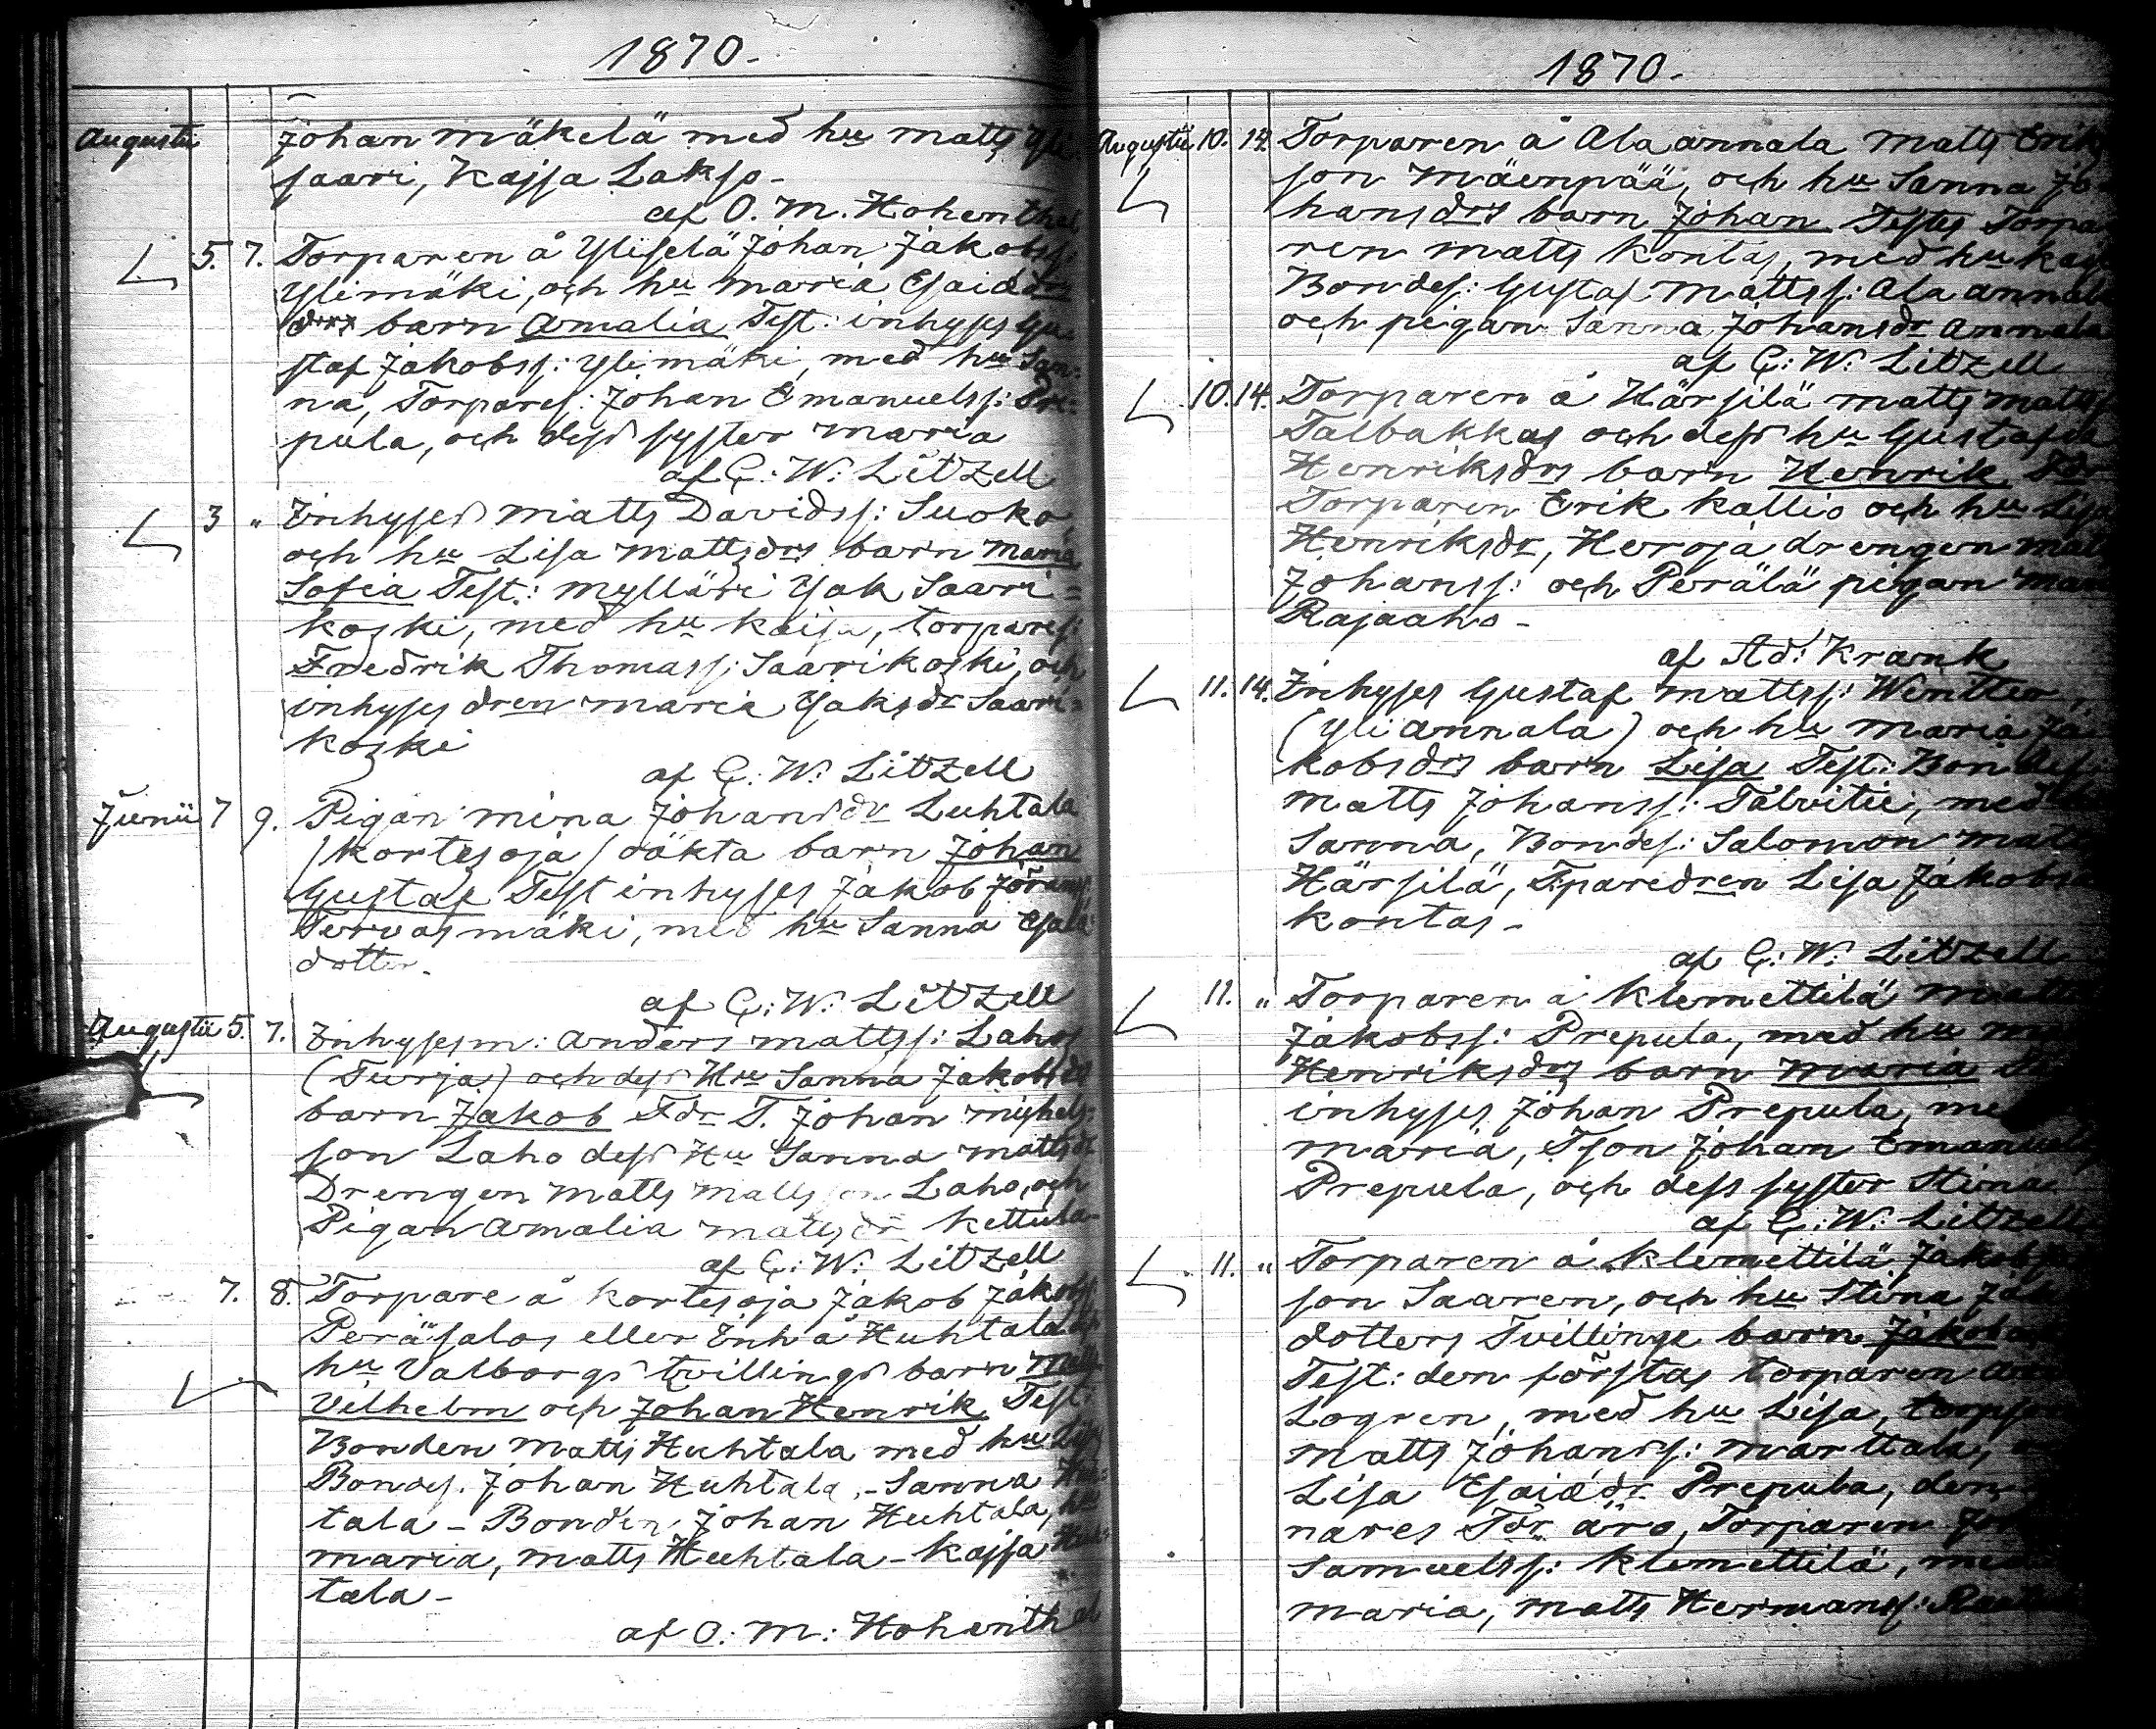 1870.
Augustii Johan Mäkelä med hu Matts Yli
saari, Kajsa Lakso.
af O. M. Hohenthal
5. 7. Torparen å Yliselä Johan Jakobss:
Ylimäki, och hu Maria Esaiædrs
barn Amalia Test: inhyses Gu
staf Jakobss: Ylimäki, med hu San=
na, Torpares: Johan Emanuelss: Pre=
pula, och dess syster Maria
af C: W: Litzell
3 " Inhyses Matts Davidss: Suoko,
och hu Lisa Mattsdrs barn Maria
Sofia Test: Mylläri Isak Saari=
koski, med hu Kaisa, torpares:
Fredrik Thomass: Saarikoski, och
inhyses dren Maria Isaksdr Saari=
koski
af C: W: Litzell
Junii 7 9. Pigan Mina Johansdr Luhtala
(Kortesoja) oäkta barn Johan
Gustaf Test inhyses Jakob Jörans:
Tervasmäki, med hu Sanna Esaiæ
dotter.
af C: W: Litzell
Augustii 5. 7. Inhysesm: Anders Mattss: Laho
(Turja) och dess Hu Sanna Jakobsds
barn Jakob Fdr T. Johan Michels=
son Laho dess Hu Sanna Mattsdr
Drengen Matts Mattsson Laho, och
Pigan Amalia Matts dr Kettula
af C: W: Litzell
7. 8. Torpare å Kortesoja Jakob Jakobss
Peräsalos eller Inh å Huhtala
hu Valborgs tvillings barn Matts
Vilhelm och Johan Henrik Test:
Bonden Matts Huhtala med hu Lisa
Bondes. Johan Huhtala, - Sanna Huh=
tala - Bonden Johan Huhtala, hu
Maria, Matts Huhtala - Kajsa Huh=
tala -
af O: M: Hohenthal
1870.
Augustii 10. 14. Torparen å Ala annala Matts Erik
son Mäenpää, och hu Sanna Jo
hansdrs barn Johan Testes Torpa
ren Matts Kontas, med hu Kajsa
Bondes: Gustaf Mattss: Ala annala
och pigan Sanna Johansdr Annala
af C: W: Litzell
10. 14. Torparen å Härsilä Matts Matts
Talbakkas och dess hu Gustafva
Henriksdrs barn Henrik Fdr
Torparen Erik Kallio och hu Lisa
Henriksdr, Heroja drengen Matts
Johanss: och Perälä pigan Maria
Rajaaho -
af Ad: Krank
11. 14. Inhyses Gustaf Mattss: Wenitter,
(Yli annala) och hu Maria Ja
kobsdrs barn Lisa Test: Bondes:
Matts Johanss: Talvitie, med
Sanna, Bondes: Salomon Matts
Härsilä, Tparedren Lisa Jakobs
Kontas -
af C: W: Litzell
11. " Torparen å Klemettilä Matts
Jakobss: Prepula, med hu
Henriksdrs barn Maria
inhyses Johan Prepula, me
Maria, Tson Johan Emanuels
Prepula, och dess syster Stina
af C: W: Litzell
11. " Torparen å Klemettilä Jakob
son Saaren, och hu Stina Jak
dotters Tvillinge barn Jakob
Test: den förstas torparen
Logren, med hu Lisa, torpson
Matts Johanss: Marttala,
Lisa Esaiædr Prepula, den
nares Fdr äro, Torparen
Samuelss: Klemettilä, med
Maria, Matts Hermanss: